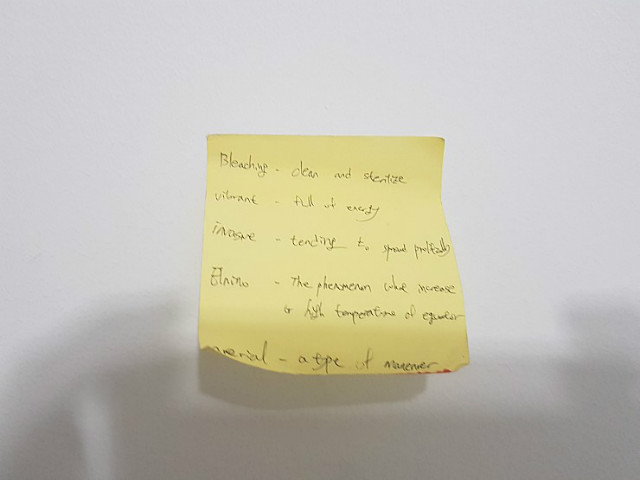 Bleaching - clean and sterilize
vibrant - full of energy
invasive - tending to spread prolifically
Elnino - The phenomenon increase
high temperature of equator
aerial - a type of maneuver